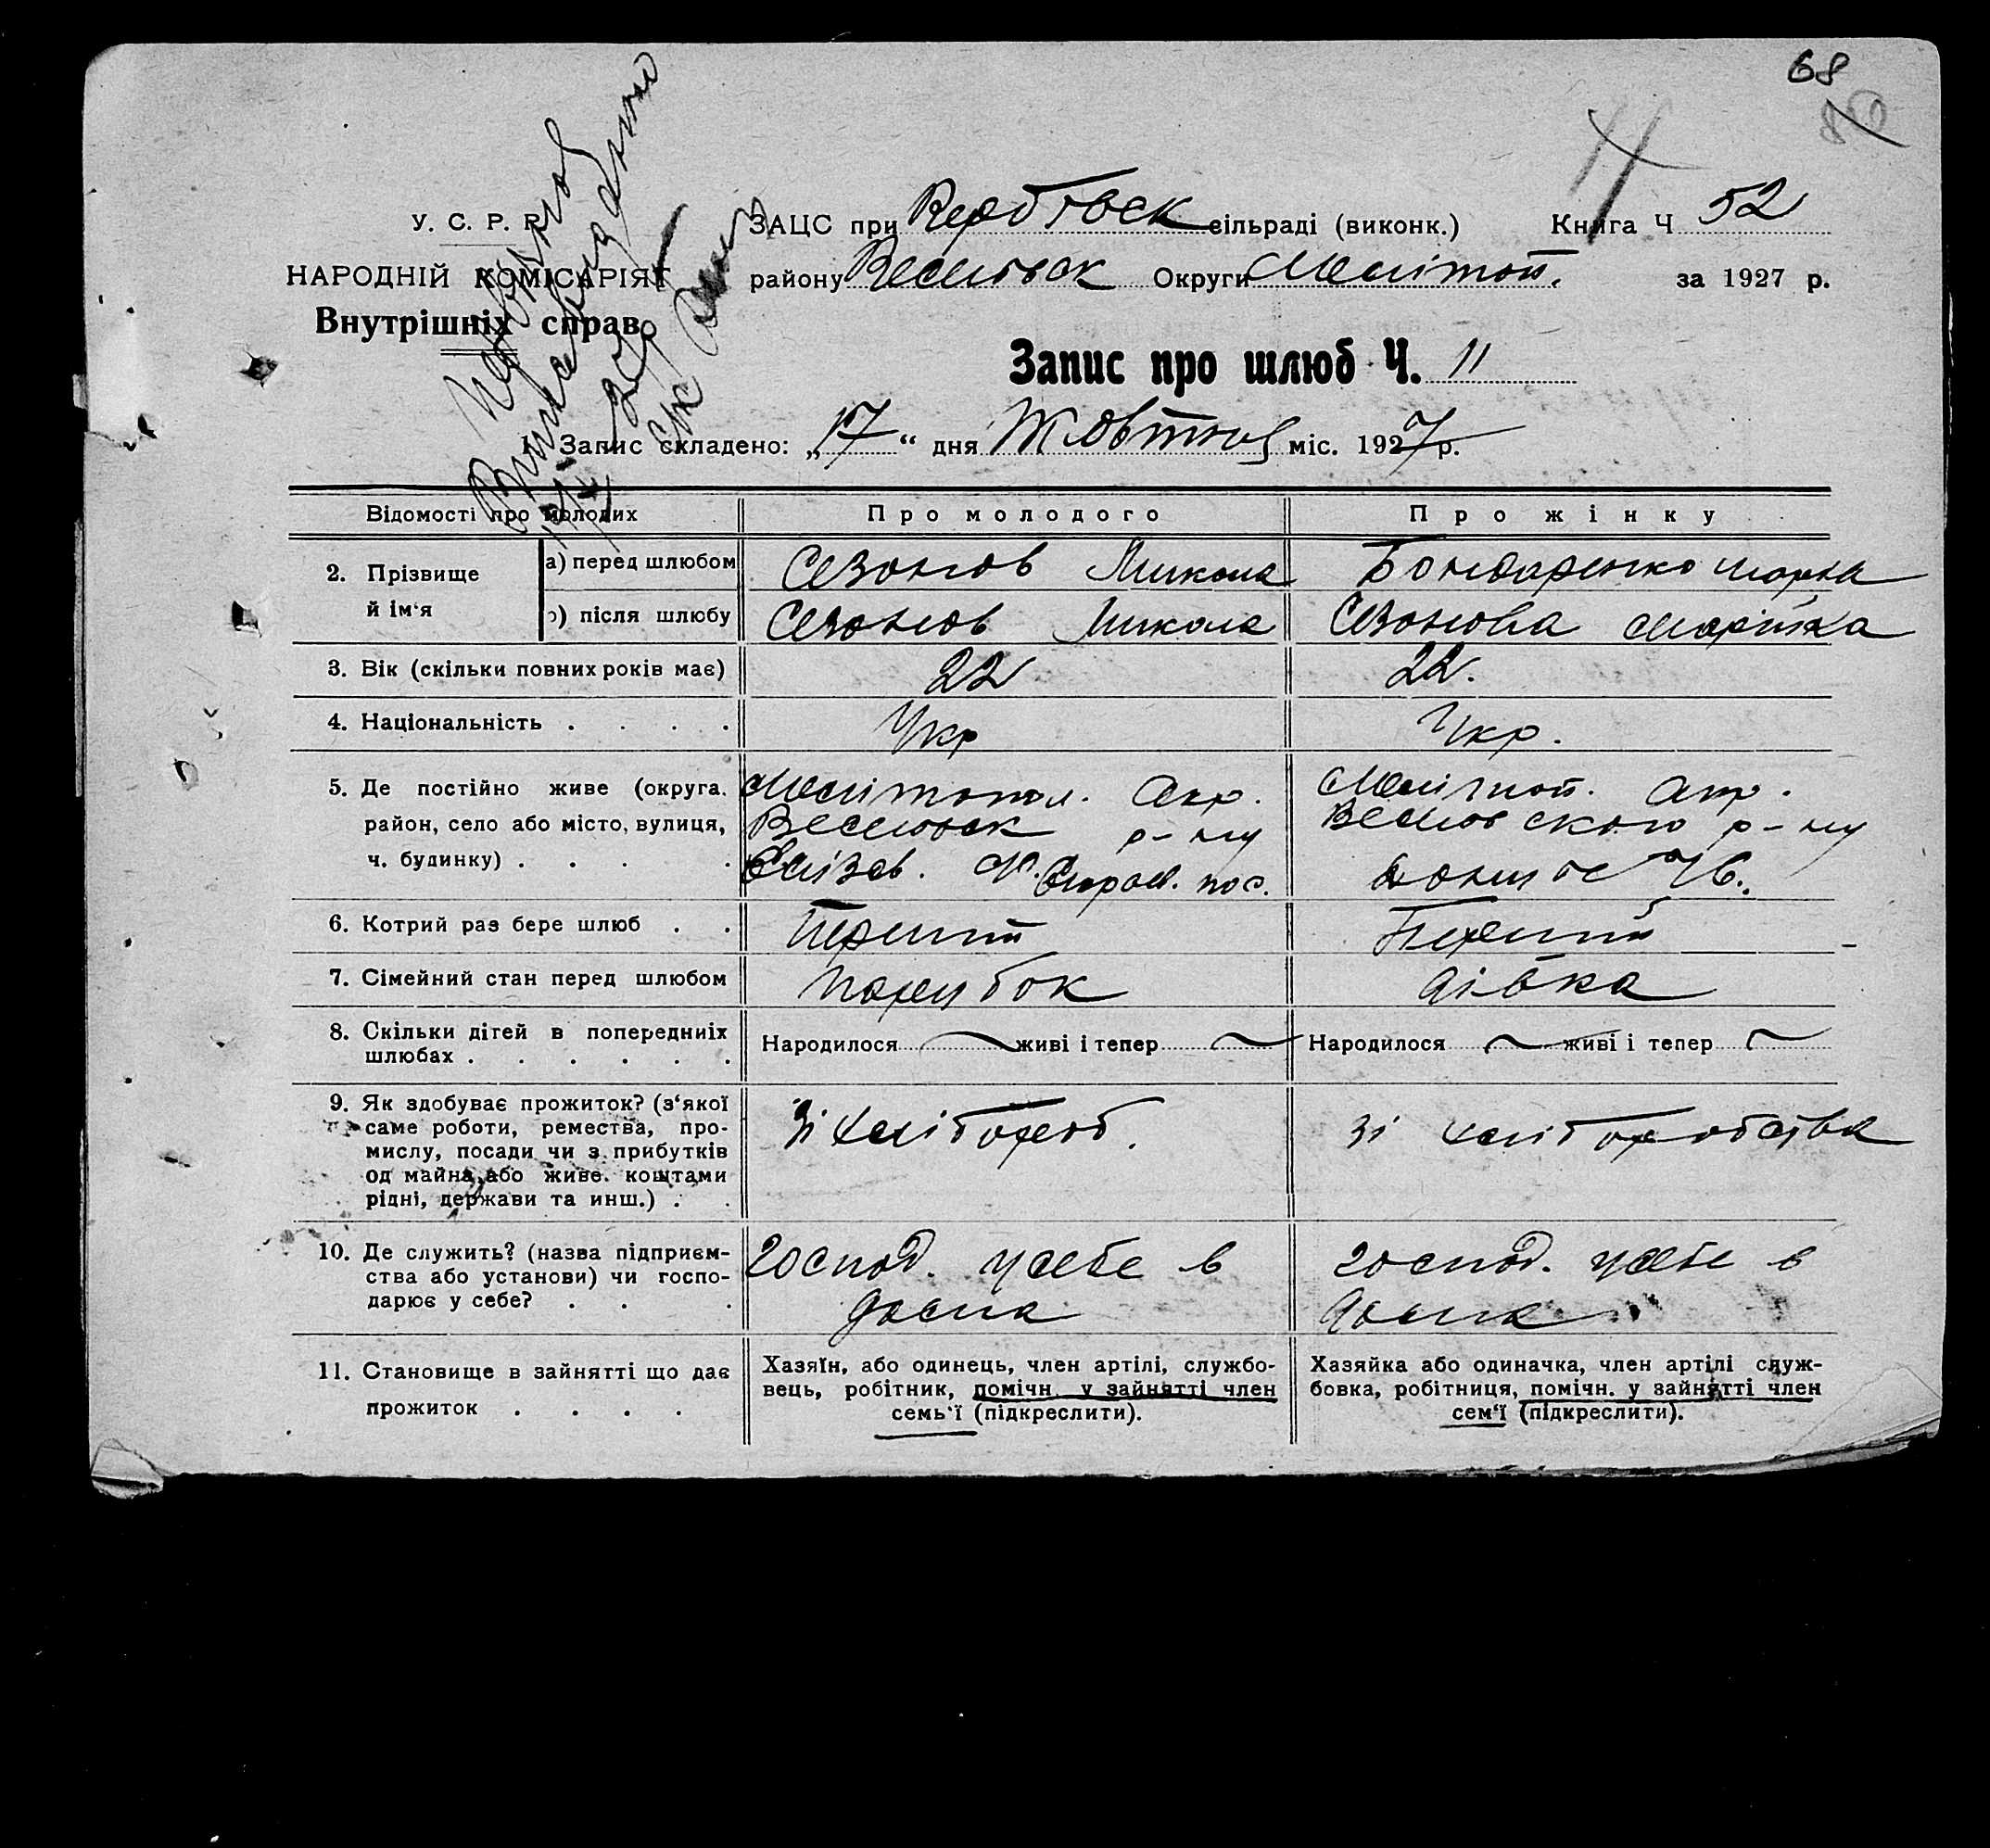 68
У. С. Р. Р.
НАРОДНІЙ КОМІСАРІЯТ
Внутрішніх справ
ЗАЦС при Вербівск сільраді (виконк.) Книга Ч 52
району Веселівск Округи Мелітоп. за 1927 р.
Запис про шлюб Ч. 11
Запис складено: „17“ дня Жовтня міс. 1927 р.
Відомості про молодих Про молодого Про жінку
2. Прізвище й ім‘я
а) перед шлюбом Сезонов Микола Бондаренко
б) після шлюбу Сезонов Микола Сезонова
3. Вік (скільки повних років має) 22 22.
4. Національність . . . . Укр Укр.
5. Де постійно живе (округа. Мелітопол. Окр. Мелітоп. Окр.
район, село або місто, вулиця, Веселівск р-ну Веселовского р-ну
ч. будинку) . . . . Єлізав.
6. Котрий раз бере шлюб . . Перший Перший
7. Сімейний стан перед шлюбом парубок дівка
8. Скільки дітей в попередниіх Народилося живі і тепер Народилося живі і тепер
шлюбах . . . . . .
9. Як здобуває прожиток? (з‘якої зі хлібороб. зі хліборобства
саме роботи, ремества, про-
мислу, посади чи з прибутків
од майна, або живе. коштами
рідні, держави та инш.) . .
10. Де служить? (назва підприєм- господ. у себе в господ. у себе в
ства або установи) чи госпо- дома дома
дарює у себе? . . .
11. Становище в зайнятті що дає Хазяїн, або одинець, член артілі, службо- Хазяйка або одиначка, член артілі служ-
прожиток . . . . вець, робітник, помічн. у зайнятті член бовка, робітниця, помічн. у зайнятті член
семь‘ї (підкреслити). сем‘ї (підкреслити).